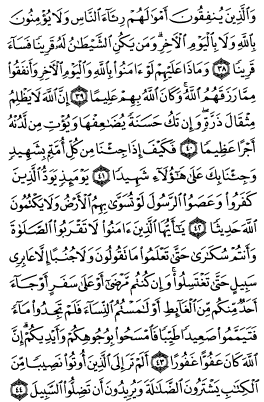 وَالَّذِينَ يُنفِقُونَ أَمْوَالَهُمْ رِئَاءَ النَّاسِ وَلَا يُؤْمِنُونَ
بِاللَّهِ وَلَا بِالْيَوْمِ الْآخِرِ وَمَن يَكُنِ الشَّيْطَانُ لَهُ قَرِينًا فَسَاءَ
قَرِينًا ٣٨ وَمَاذَا عَلَيْهِمْ لَوْ ءَامَنُوا بِاللَّهِ وَالْيَوْمِ الْآخِرِ وَأَنفَقُوا
مِمَّا رَزَقَهُمُ اللَّهُ وَكَانَ اللَّهُ بِهِمْ عَلِيمًا ٣٩ إِنَّ اللَّهَ لَا يَظْلِمُ
مِثْقَالَ ذَرَّةٍ وَإِن تَكُ حَسَنَةً يُضَاعِفْهَا وَيُؤْتِ مِن لَّدُنْهُ
أَجْرًا عَظِيمًا ٤٠ فَكَيْفَ إِذَا جِئْنَا مِن كُلِّ أُمَّةٍ بِشَهِيدٍ
وَجِئْنَا بِكَ عَلَىٰ هَٰؤُلَاءِ شَهِيدًا ٤١ يَوْمَئِذٍ يَوَدُّ الَّذِينَ
كَفَرُوا وَعَصَوُا الرَّسُولَ لَوْ تُسَوَّىٰ بِهِمُ الْأَرْضُ وَلَا يَكْتُمُونَ
اللَّهَ حَدِيثًا ٤٢ يَا أَيُّهَا الَّذِينَ ءَامَنُوا لَا تَقْرَبُوا الصَّلَوٰةَ
وَأَنتُمْ سُكَارَىٰ حَتَّىٰ تَعْلَمُوا مَا تَقُولُونَ وَلَا جُنُبًا إِلَّا عَابِرِي
سَبِيلٍ حَتَّىٰ تَغْتَسِلُوا وَإِن كُنتُم مَّرْضَىٰ أَوْ عَلَىٰ سَفَرٍ أَوْ جَاءَ
أَحَدٌ مِّنكُم مِّنَ الْغَائِطِ أَوْ لَامَسْتُمُ النِّسَاءَ فَلَمْ تَجِدُوا مَاءً
فَتَيَمَّمُوا صَعِيدًا طَيِّبًا فَامْسَحُوا بِوُجُوهِكُمْ وَأَيْدِيكُمْ إِنَّ
اللَّهَ كَانَ عَفُوًّا غَفُورًا ٤٣ أَلَمْ تَرَ إِلَى الَّذِينَ أُوتُوا نَصِيبًا مِّنَ
الْكِتَابِ يَشْتَرُونَ الضَّلَالَةَ وَيُرِيدُونَ أَن تَضِلُّوا السَّبِيلَ ٤٤